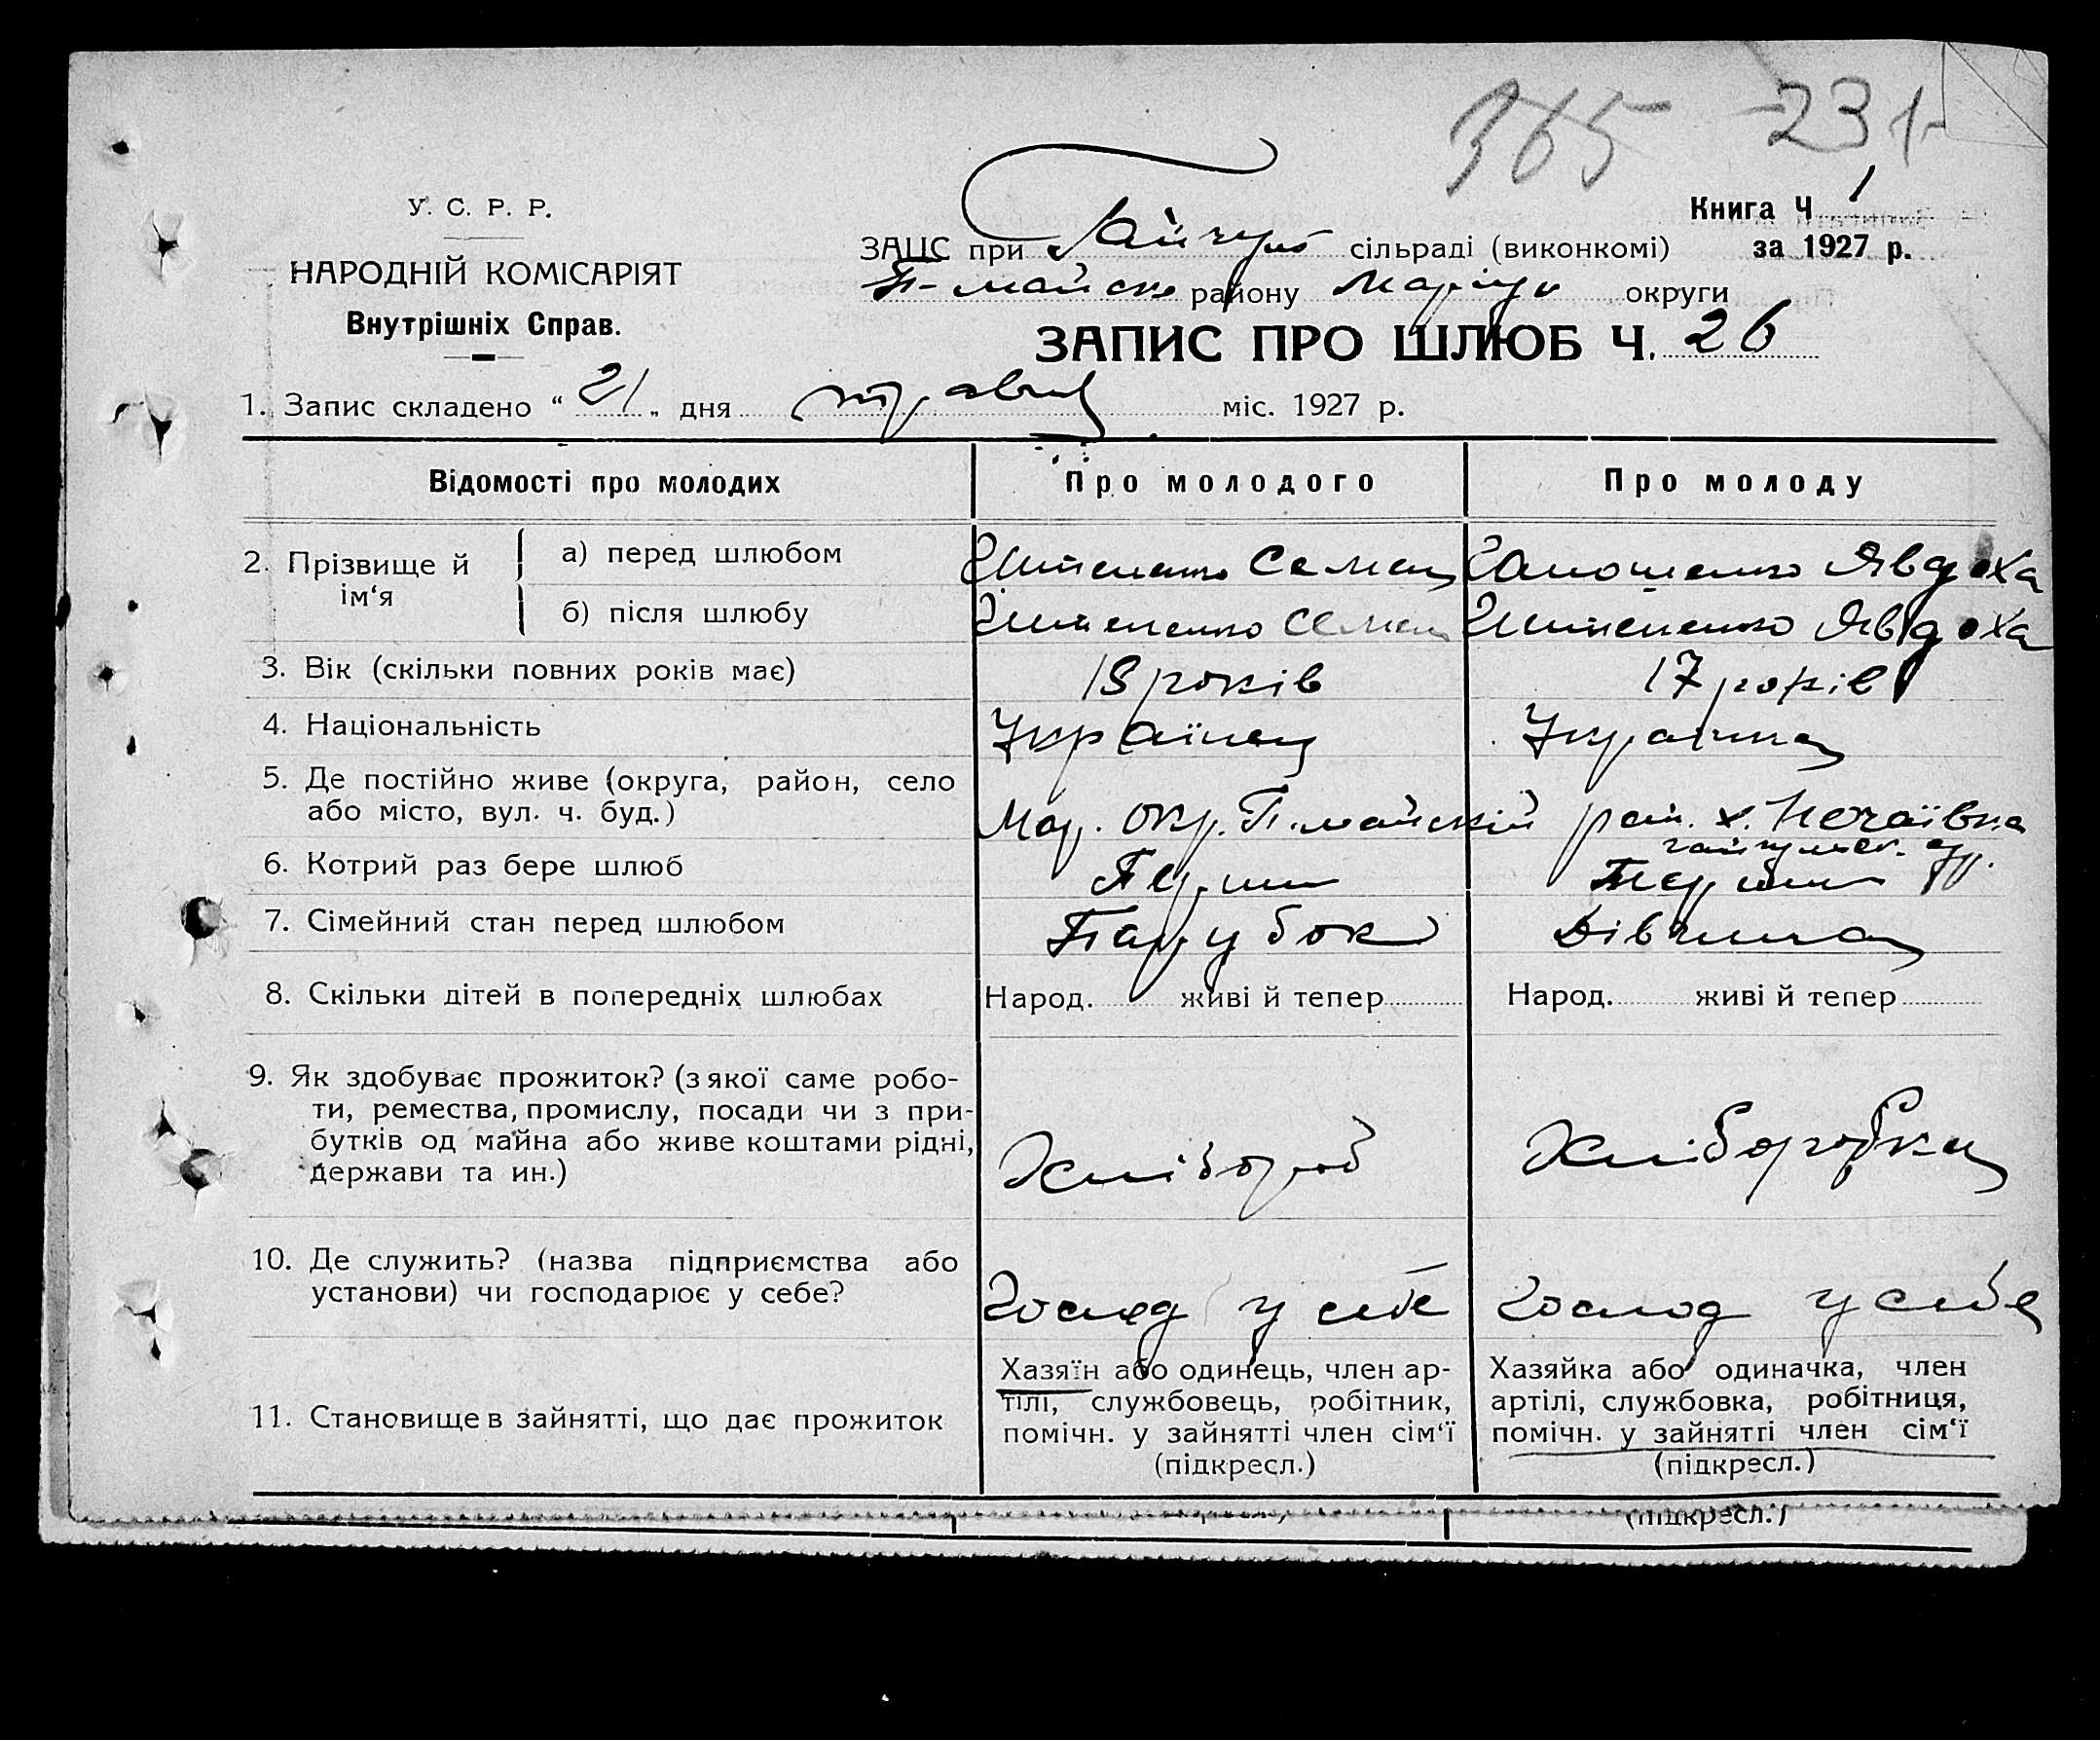 365 231
У. С. Р. Р.
НАРОДНІЙ КОМІСАРІЯТ
Внутрішніх Справ.
Книга Ч 1
за 1927 р.
ЗАЦС при Гайчул сільраді (виконкомі)
П-майськ району Маріуп округи
ЗАПИС ПРО ШЛЮБ Ч. 26
1. Запис складено “ 21 „ дня травня міс. 1927 р.
Відомості про молодих Про молодого Про молоду
2. Прізвище й ім‘я
а) перед шлюбом Семен Явдоха
б) після шлюбу Семен Явдоха
3. Вік (скільки повних років має) 18 років 17 років
4. Національність Українец Українка
5. Де постійно живе (округа, район, село
або місто, вул. ч. буд.) Мар. окр. П.майський рай. х. Нечаївка
6. Котрий раз бере шлюб Перши Перши
7. Сімейний стан перед шлюбом Парубок Дівчина
8. Скільки дітей в попередніх шлюбах Народ. живі й тепер Народ. живі й тепер
9. Як здобуває прожиток? (з якої саме робо-
ти, ремества, промислу, посади чи з при-
бутків од майна або живе коштами рідні,
держави та ин.) Хлібороб Хліборобка
10. Де служить? (назва підприємства або
установи) чи господарює у себе? Господ у себе Господ у себе
11. Становище в зайнятті, що дає прожиток
Хазяїн або одинець, член ар-
тілі, службовець, робітник,
помічн. у зайнятті член сім‘ї
(підкресл.)
Хазяйка або одиначка, член
артілі, службовка, робітниця,
помічн. у зайнятті член сім‘ї
(підкресл.)
(підкресл.)